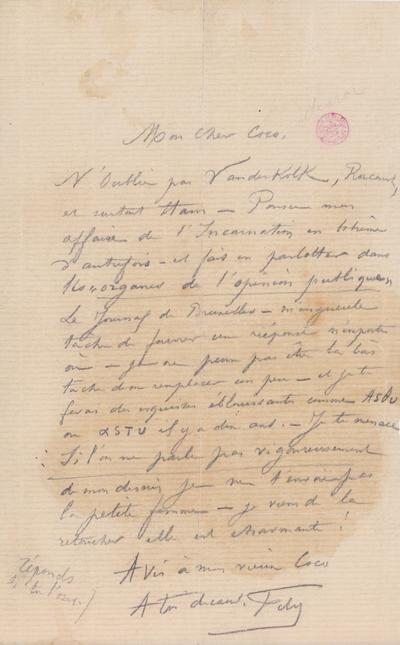 Mon cher Coco,
N'oublie pas Vanderkolk, Rocaud,
et surtout Ham — Pousse mon
affaire de l'Incarnation en bohème
d'autrefois — et fais en parlotter dans
les « organes de l'opinion publique »
Le Journal de Bruxelles — m'engueule
tâche de fourrer une réponse n'importe
où — je ne peux pas être là bas
tâche donc remplacer un peu — et je te
ferai des éblouissantes comme ASTU
ou ASTU il y a dix ans. — Je te menace
: Si l'on ne parle pas vigoureusement
de mon dessin je ne t'envoie pas
la petite femme — je viens de la
retoucher elle est charmante !
A vis à mon vieux Coco
A toi de cœur. Fély
Réponds
si tu l'oses !